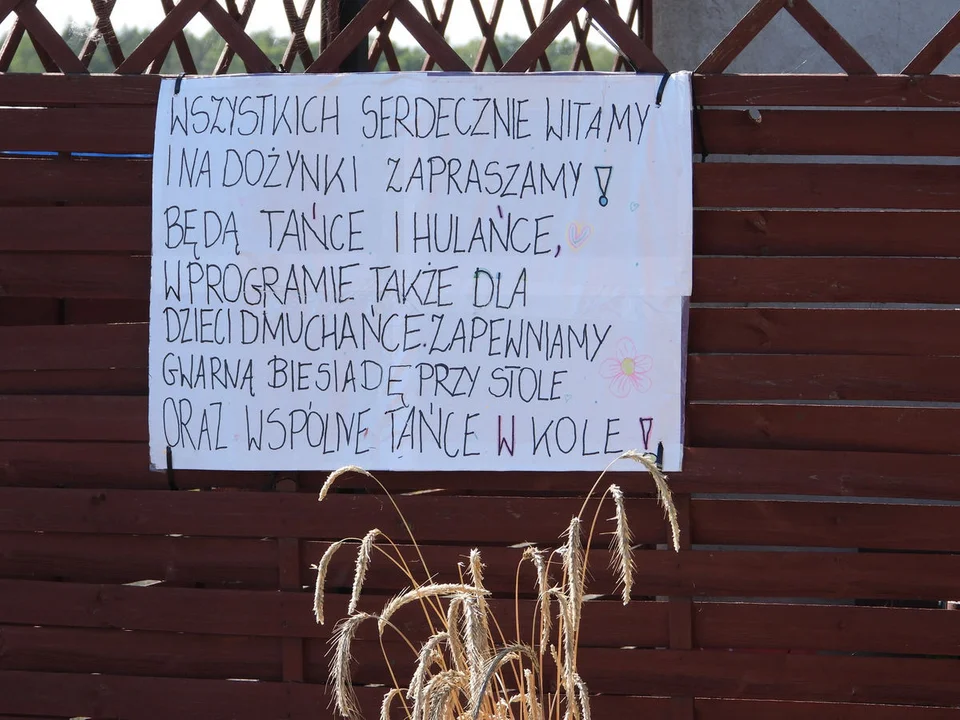 WSZYSTKICH SERDECZNIE WITAMY
I NA DOŻYNKI ZAPRASZAMY!
BĘDĄ TAŃCE I HULAŃCE,
W PROGRAMIE TAKŻE DLA
DZIECI DMUCHAŃCE. ZAPEWNIAMY
GWARNĄ BIESIADĘ PRZY STOLE
ORAZ WSPÓLNE TAŃCE W KOLE!